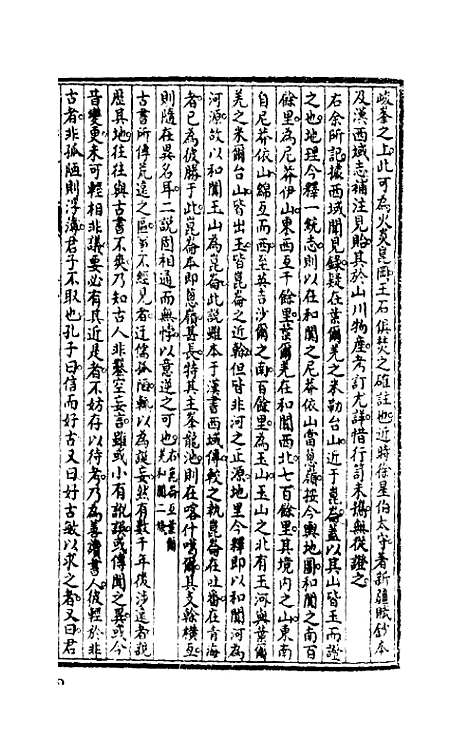 峻峯之上此可為火炎崑岡玉石俱焚之確註也近時徐星伯太守著新疆賦鈔本
及漢西域志補注見貽其於山川物產考訂尤詳惜行笥未攜無從證之
右余所記據西域聞見錄疑在葉爾羌之米勒台山近于崑崙蓋以其山皆玉而證
之也地理今釋一統志則以在和闐之尼莽依山當崑崙按今輿地圖和闐之南百
餘里為尼莽伊山東西亙千餘里葉爾羌在和闐西北七百餘里其境内之山東南
自尼莽依山綿亙而西至英吉沙爾之南百餘里為玉山玉山之北有玉河與葉爾
羌之米爾台山皆出玉皆崑崙之近榦但皆非河之正源地里今釋即以和闐河為
河源故以和闐玉山為崑崙此說雖本于漢書西域傳較之執崑崙在吐番在青海
者已為彼勝于此崑崙本即蔥嶺甚長特其主峯龍池則在喀什噶爾其支榦橫亙
則隨在異名耳二說固相通而無悖以意逆之可也
古書所傳荒遠之區多不經見者迂儒孤陋輒以為誕妄然有數千年後涉遠者說
歷其地往往與古書不爽乃知古人非鑿空妄言雖或小有訛誤或傳聞之異或今
音變更未可輕相非議要必有其近是者不妨存以待考乃為善讀書人彼輕於非
古者非孤陋則浮薄君子不取也孔子曰信而好古又曰好古敏以求之者又曰君